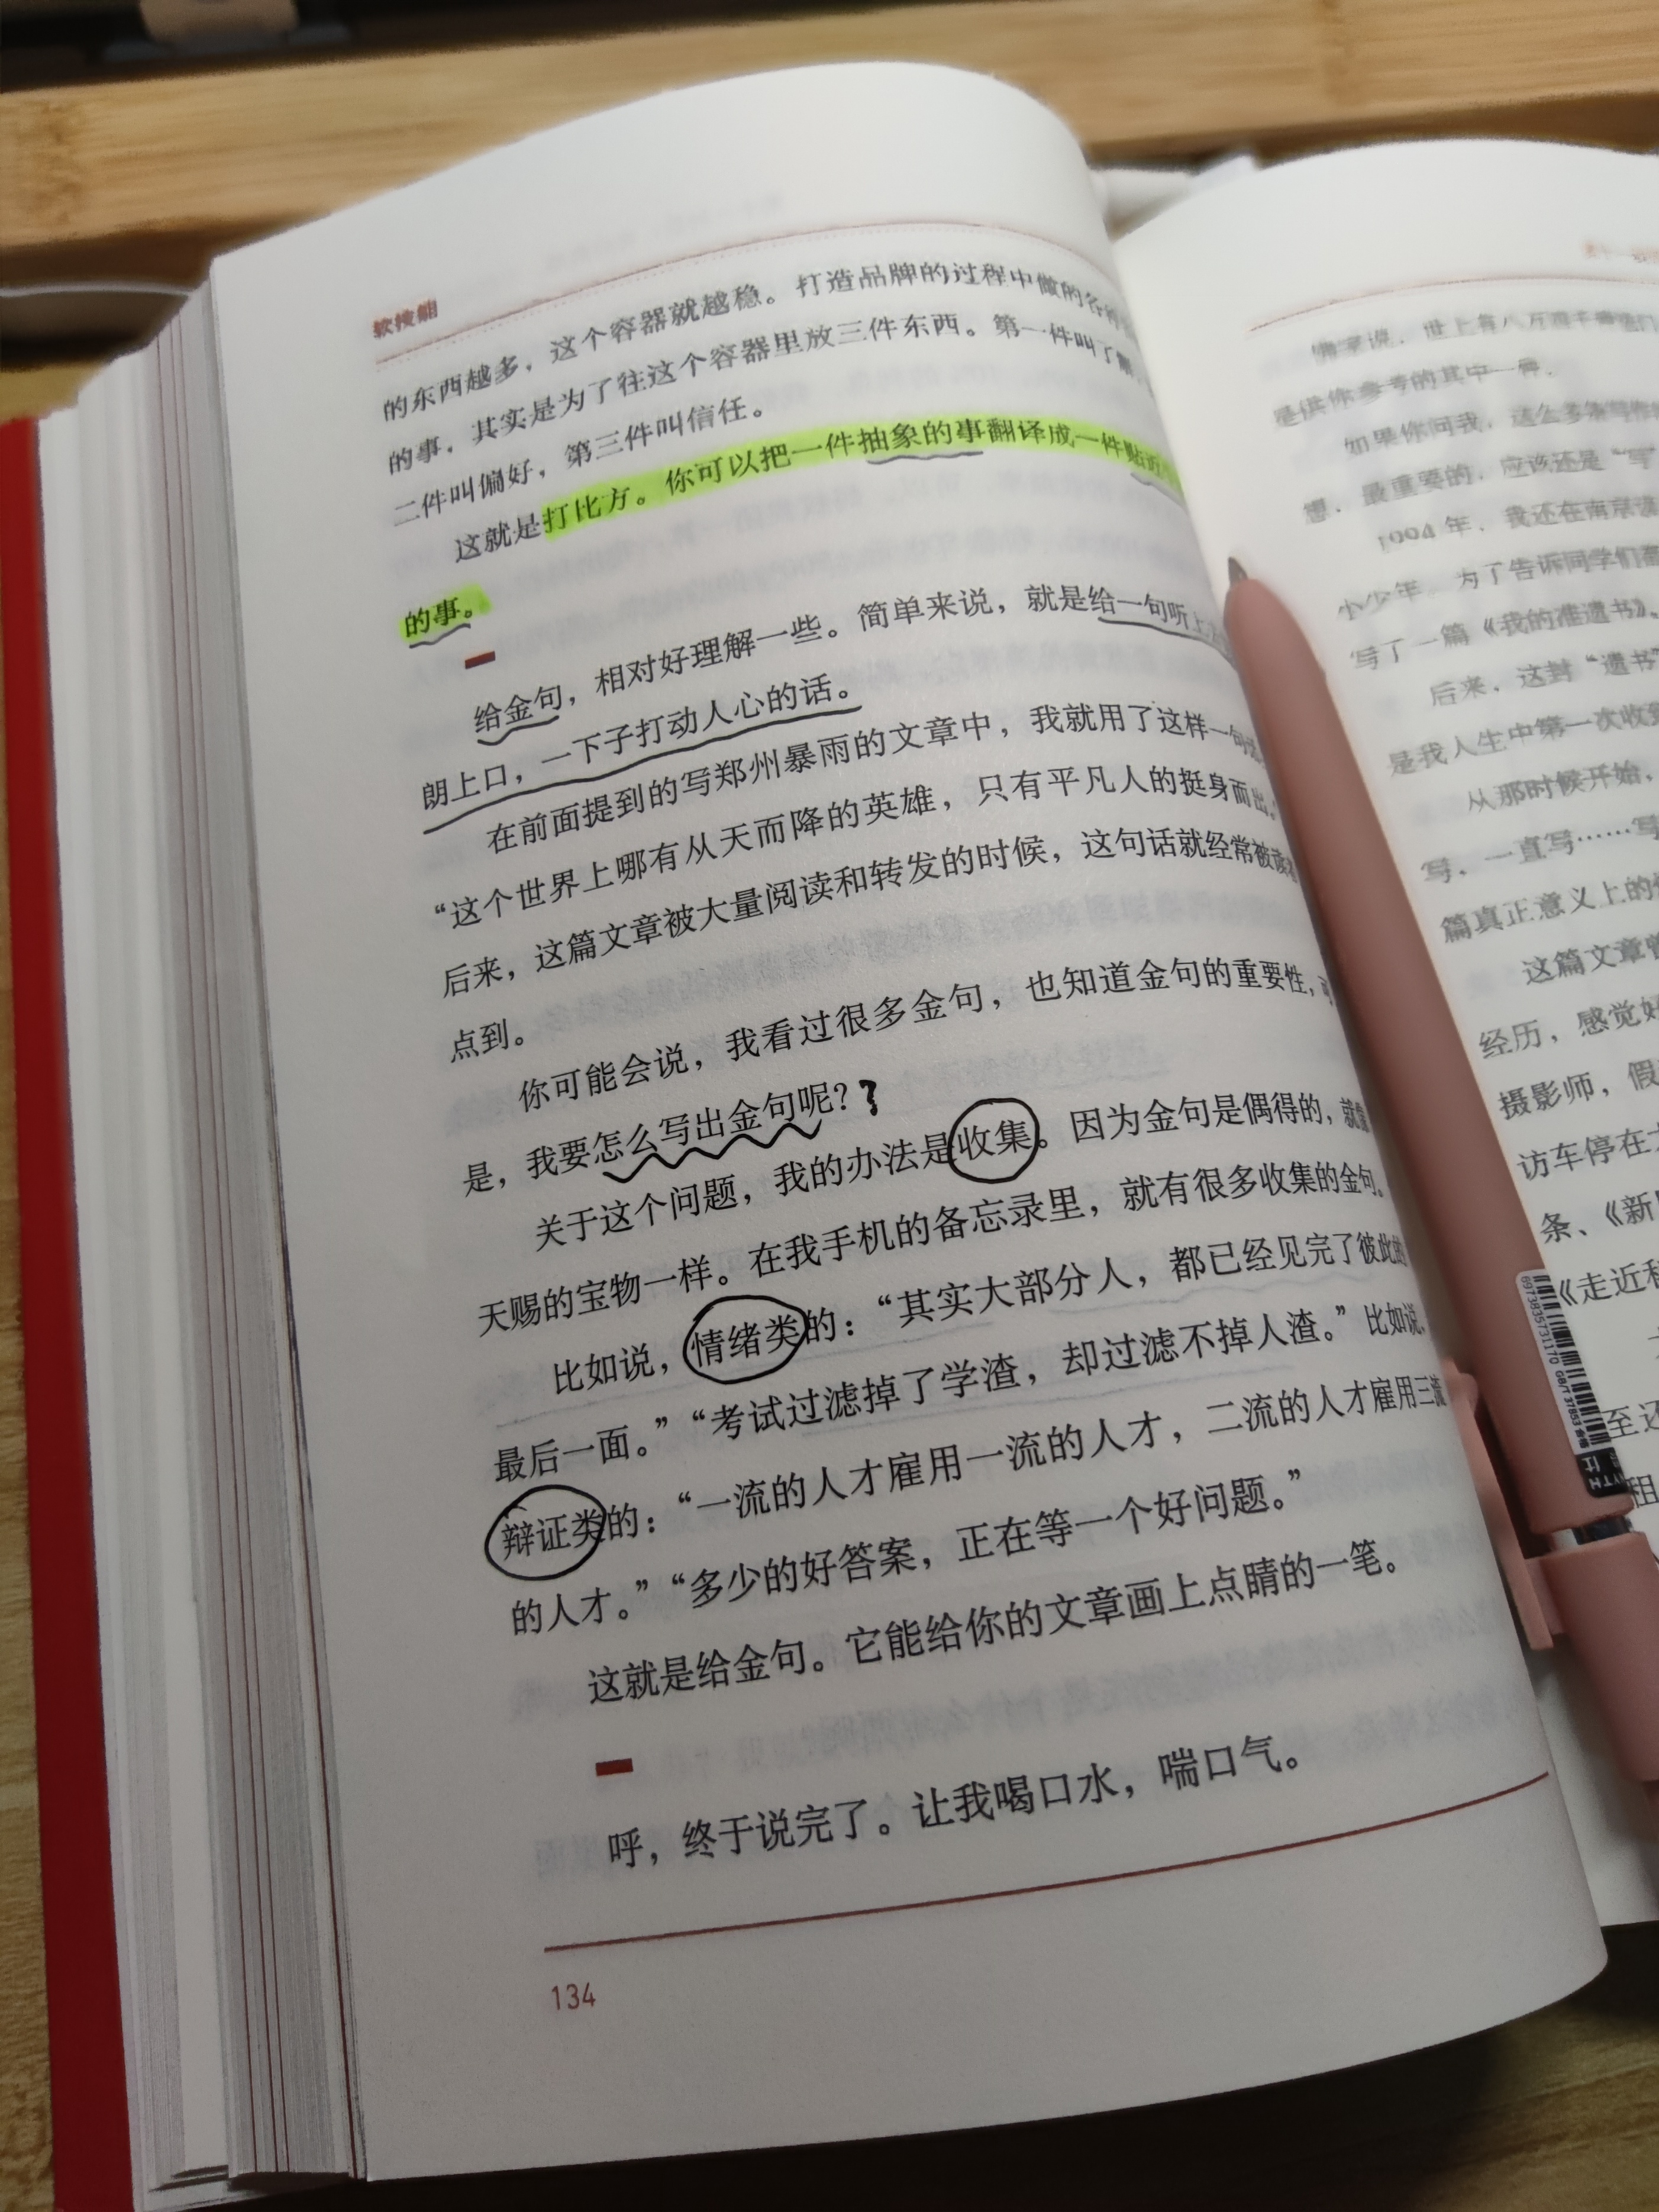 软技能
的东西越多，这个容器就越稳。打造品牌的过程中做的各
的事，其实是为了往这个容器里放三件东西。第一件叫了解，
二件叫偏好，第三件叫信任。
这就是打比方。你可以把一件抽象的事翻译成一件贴近
的事。
给金句，相对好理解一些。简单来说，就是给一句听上去
朗上口，一下子打动人心的话。
在前面提到的写郑州暴雨的文章中，我就用了这样一句
“这个世界上哪有从天而降的英雄，只有平凡人的挺身而出。
后来，这篇文章被大量阅读和转发的时候，这句话就经常被读者
点到。
你可能会说，我看过很多金句，也知道金句的重要性，可
是，我要怎么写出金句呢？?
关于这个问题，我的办法是收集。因为金句是偶得的，就像
天赐的宝物一样。在我手机的备忘录里，就有很多收集的金句。
比如说，情绪类的：“其实大部分人，都已经见完了彼此的
最后一面。”“考试过滤掉了学渣，却过滤不掉人渣。”比如说，
辩证类的：“一流的人才雇用一流的人才，二流的人才雇用三流
的人才。”“多少的好答案，正在等一个好问题。”
这就是给金句。它能给你的文章画上点睛的一笔。
呼，终于说完了。让我喝口水，喘口气。
134
佛家说，世上有八万四千
是供你参考的其中一种。
如果你问我，这么多条写作
想，最重要的，应该还是“写”
1994年，我还在南京
小少年，为了告诉同学们
写了一篇《我的准遗书》。
后来，这封“遗书”
是我人生中第一次收到
从那时候开始，
写，一直写……写
篇真正意义上的
这篇文章
经历，感觉好
摄影师，假
访车停在
条、《新
《走近科
至还
租
6973835731170